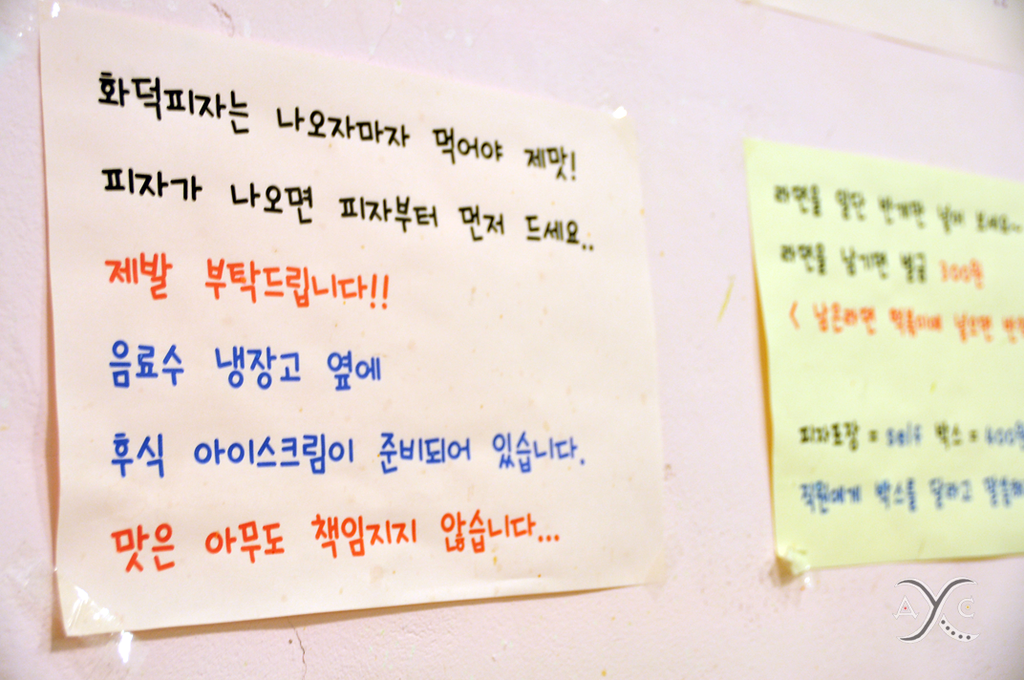 화덕피자는 나오자마자 먹어야 제맛!
피자가 나오면 피자부터 먼저 드세요..
제발 부탁드립니다!!
음료수 냉장고 옆에
후식 아이스크림이 준비되어 있습니다.
맛은 아무도 책임지지 않습니다...
라면을 일단 반개만 넣어 보세요..
라면을 남기면 벌금 300원
< 남은라면 떡볶이에 넣으면
피자포장 = self 박스 = 600원
직원에게 박스를 달라고
AYC